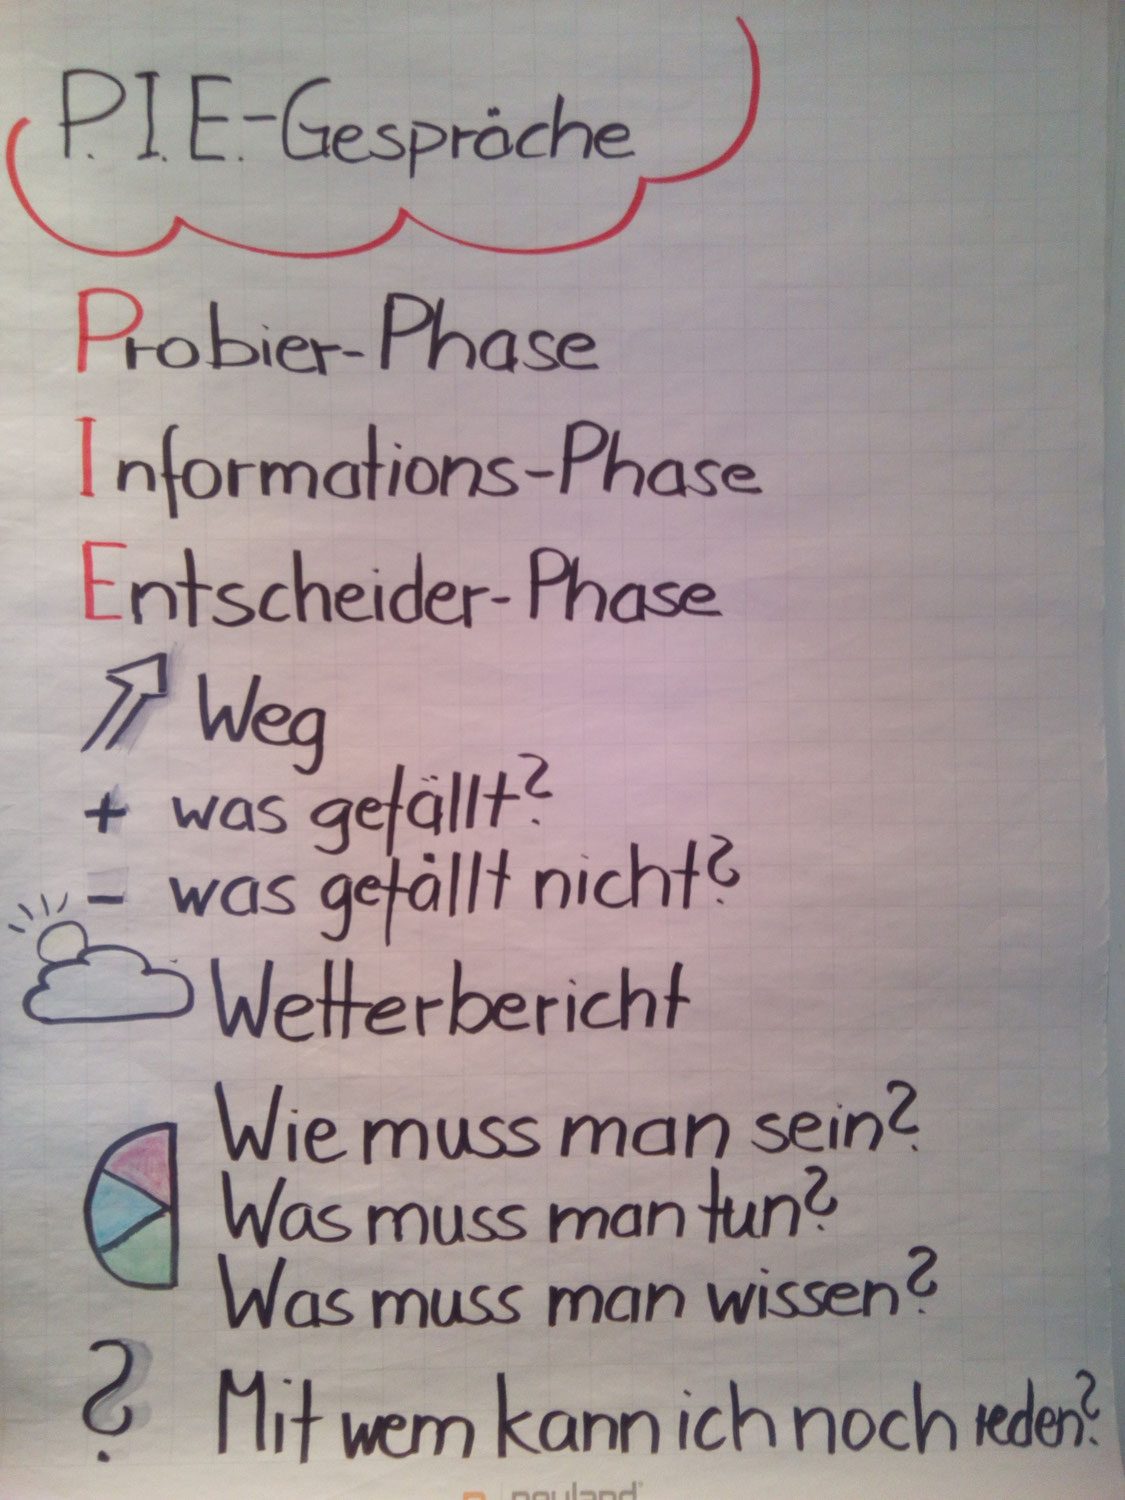 P.I.E.-Gespräche
Probier-Phase
Informations-Phase
Entscheider-Phase
Weg
+ was gefällt?
- was gefällt nicht?
Wetterbericht
Wie muss man sein?
Was muss man tun?
Was muss man wissen?
? Mit wem kann ich noch reden?
neuland